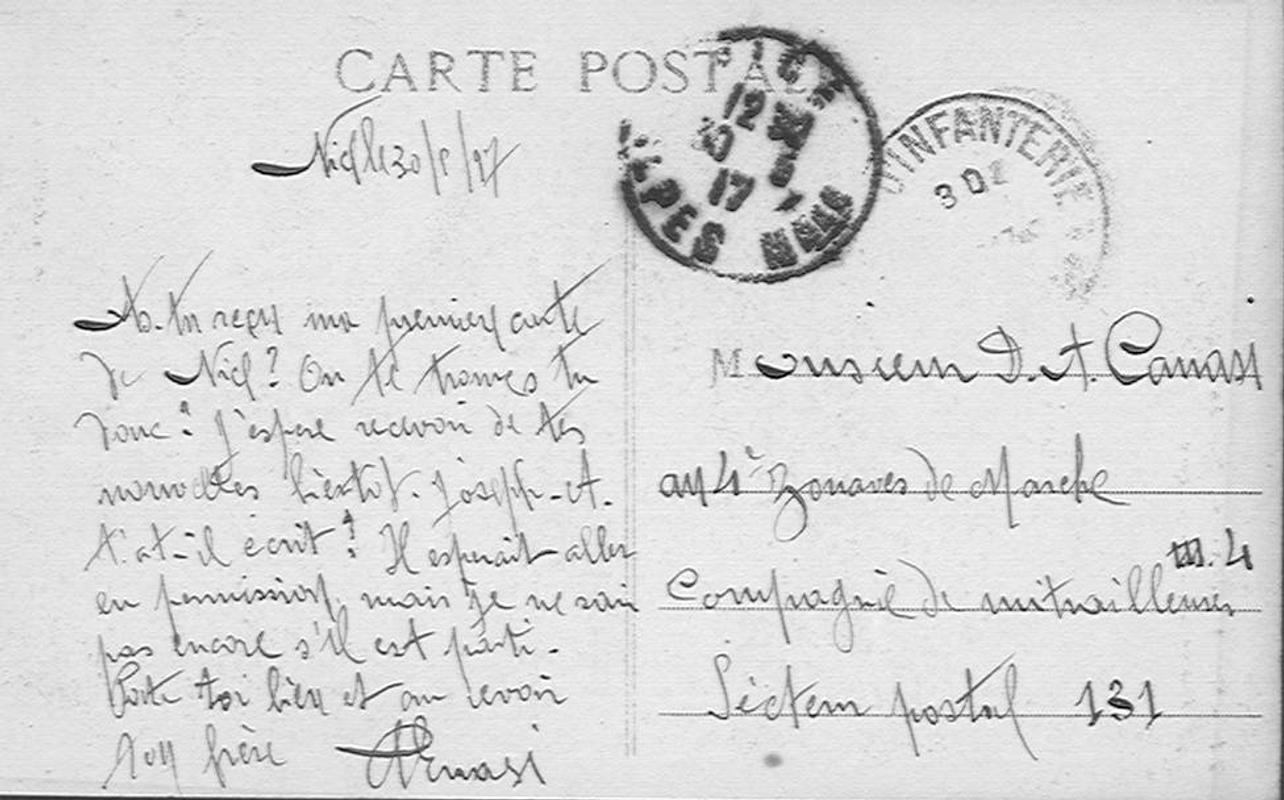 CARTE POSTALE
Nice le 30/5/17
NICE
12
17
ALPES MMES
D'INFANTERIE
As-tu reçu ma première carte
de Nice? Ou te trouves tu
donc? J'espère recevoir de tes
nouvelles bientôt. Joseph-A.
t'at-il écrit? Il esperait aller
en permission, mais je ne sais
pas encore s'il est parti.
Porte toi bien et au revoir
Ton frère
Monsieur D. A. Canasi
au 4e Zouaves de Marche
Compagnie de mitrailleuses
m. 4
Sécteur postal 131